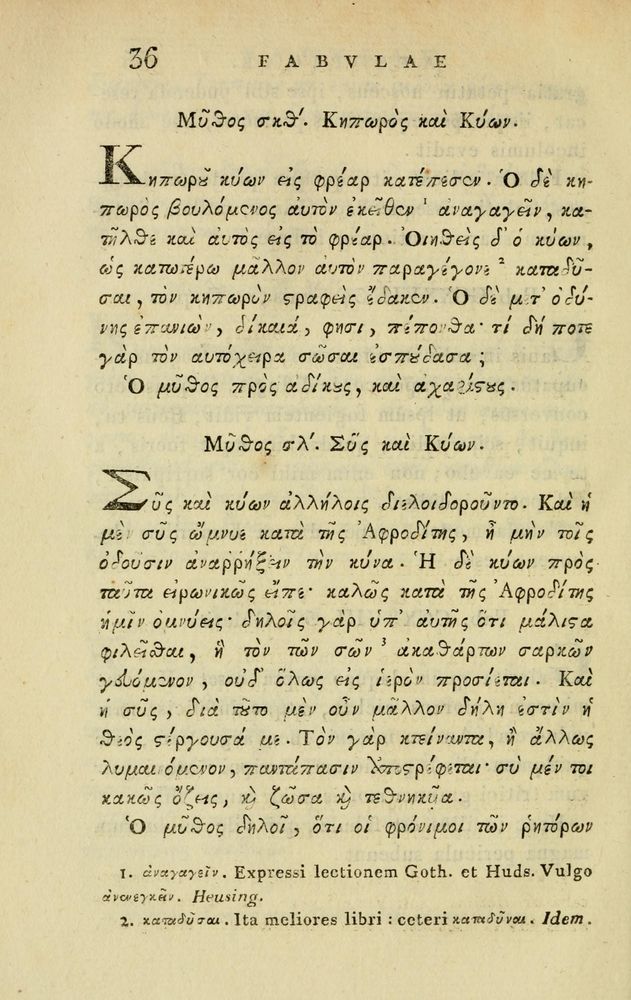 36 FABVLAE
Μῦθος σκθʹ. Κηπωρὸς καὶ Κύων.
Κηπωροῦ κύων εἰς φρέαρ κατέπεσεν. Ὁ δὲ κη-
πωρὸς βουλόμενος αὐτὸν ἐκεῖθεν 1 ἀναγαγεῖν, κα-
τῆλθε καὶ αὐτὸς εἰς τὸ φρέαρ. Οἰηθεὶς δ' ὁ κύων,
ὡς κατωτέρω μᾶλλον αὐτὸν παραγέγονε 2 καταδῦ-
σαι, τὸν κηπωρὸν στραφεὶς ἔδακεν. Ὁ δὲ μετ' ὀδύ-
νης ἐπανιὼν, δίκαιά, φησι, πέπονθα· τί δή ποτε
γὰρ τὸν αὐτόχειρα σῶσαι ἐσπούδασα;
Ὁ μῦθος πρὸς ἀδίκους, καὶ ἀχαρίστους.
Μῦθος σλʹ. Σῦς καὶ Κύων.
Σῦς καὶ κύων ἀλλήλοις διελοιδοροῦντο. Καὶ ἡ
μὲν σῦς ὤμνυε κατὰ τῆς Ἀφροδίτης, ἦ μὴν τοῖς
ὀδοῦσιν ἀναρρήξειν τὴν κύνα. Ἡ δὲ κύων πρὸς
ταῦτα εἰρωνικῶς εἶπε· καλῶς κατὰ τῆς Ἀφροδίτης
ἡμῖν ὀμνύεις· δηλοῖς γὰρ ὑπ' αὐτῆς ὅτι μάλιστα
φιλεῖσθαι, ἣ τὸν τῶν σῶν 3 ἀκαθάρτων σαρκῶν
γευόμενον, οὐδ' ὅλως εἰς ἱερὸν προσίεται. Καὶ
ἡ σῦς, διὰ τοῦτο μὲν οὖν μᾶλλον δήλη ἐστὶν ἡ
θεὸς στέργουσά με. Τὸν γὰρ κτείναντα, ἢ ἄλλως
λυμαινόμενον, παντάπασιν ἀποστρέφεται· σὺ μέν τοι
κακῶς ὄζεις, καὶ ζῶσα καὶ τεθνηκυῖα.
Ὁ μῦθος δηλοῖ, ὅτι οἱ φρόνιμοι τῶν ῥητόρων
1. ἀναγαγεῖν. Expressi lectionem Goth. et Huds. Vulgo
ἀνενεγκεῖν. Heusing.
2. καταδῦσαι. Ita meliores libri : ceteri καταδῦναι. Idem.